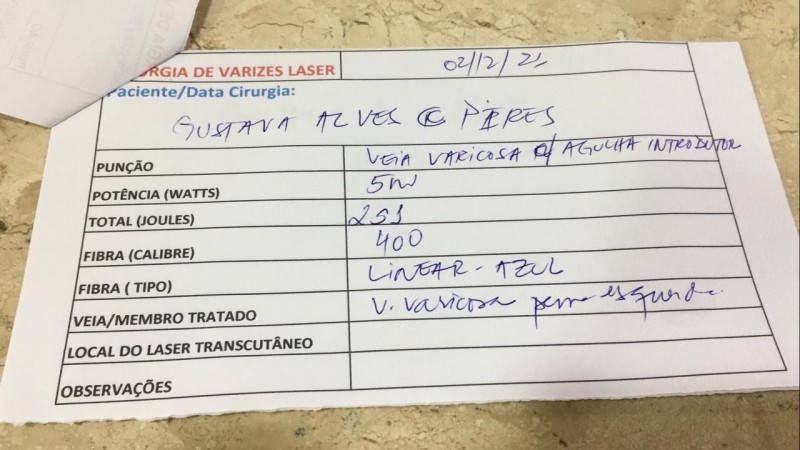 RGIA DE VARIZES LASER 02/12/21
Paciente/Data Cirurgia:
GUSTAVA ALVES PIRES
PUNÇÃO VEIA VARICOSA C/ AGULHA INTRODUTOR
POTÊNCIA (WATTS) 5W
TOTAL (JOULES) 251
FIBRA (CALIBRE) 400
FIBRA ( TIPO) LINEAR - AZUL
VEIA/MEMBRO TRATADO V. Varicosa perna esquerda
LOCAL DO LASER TRANSCUTÂNEO
OBSERVAÇÕES